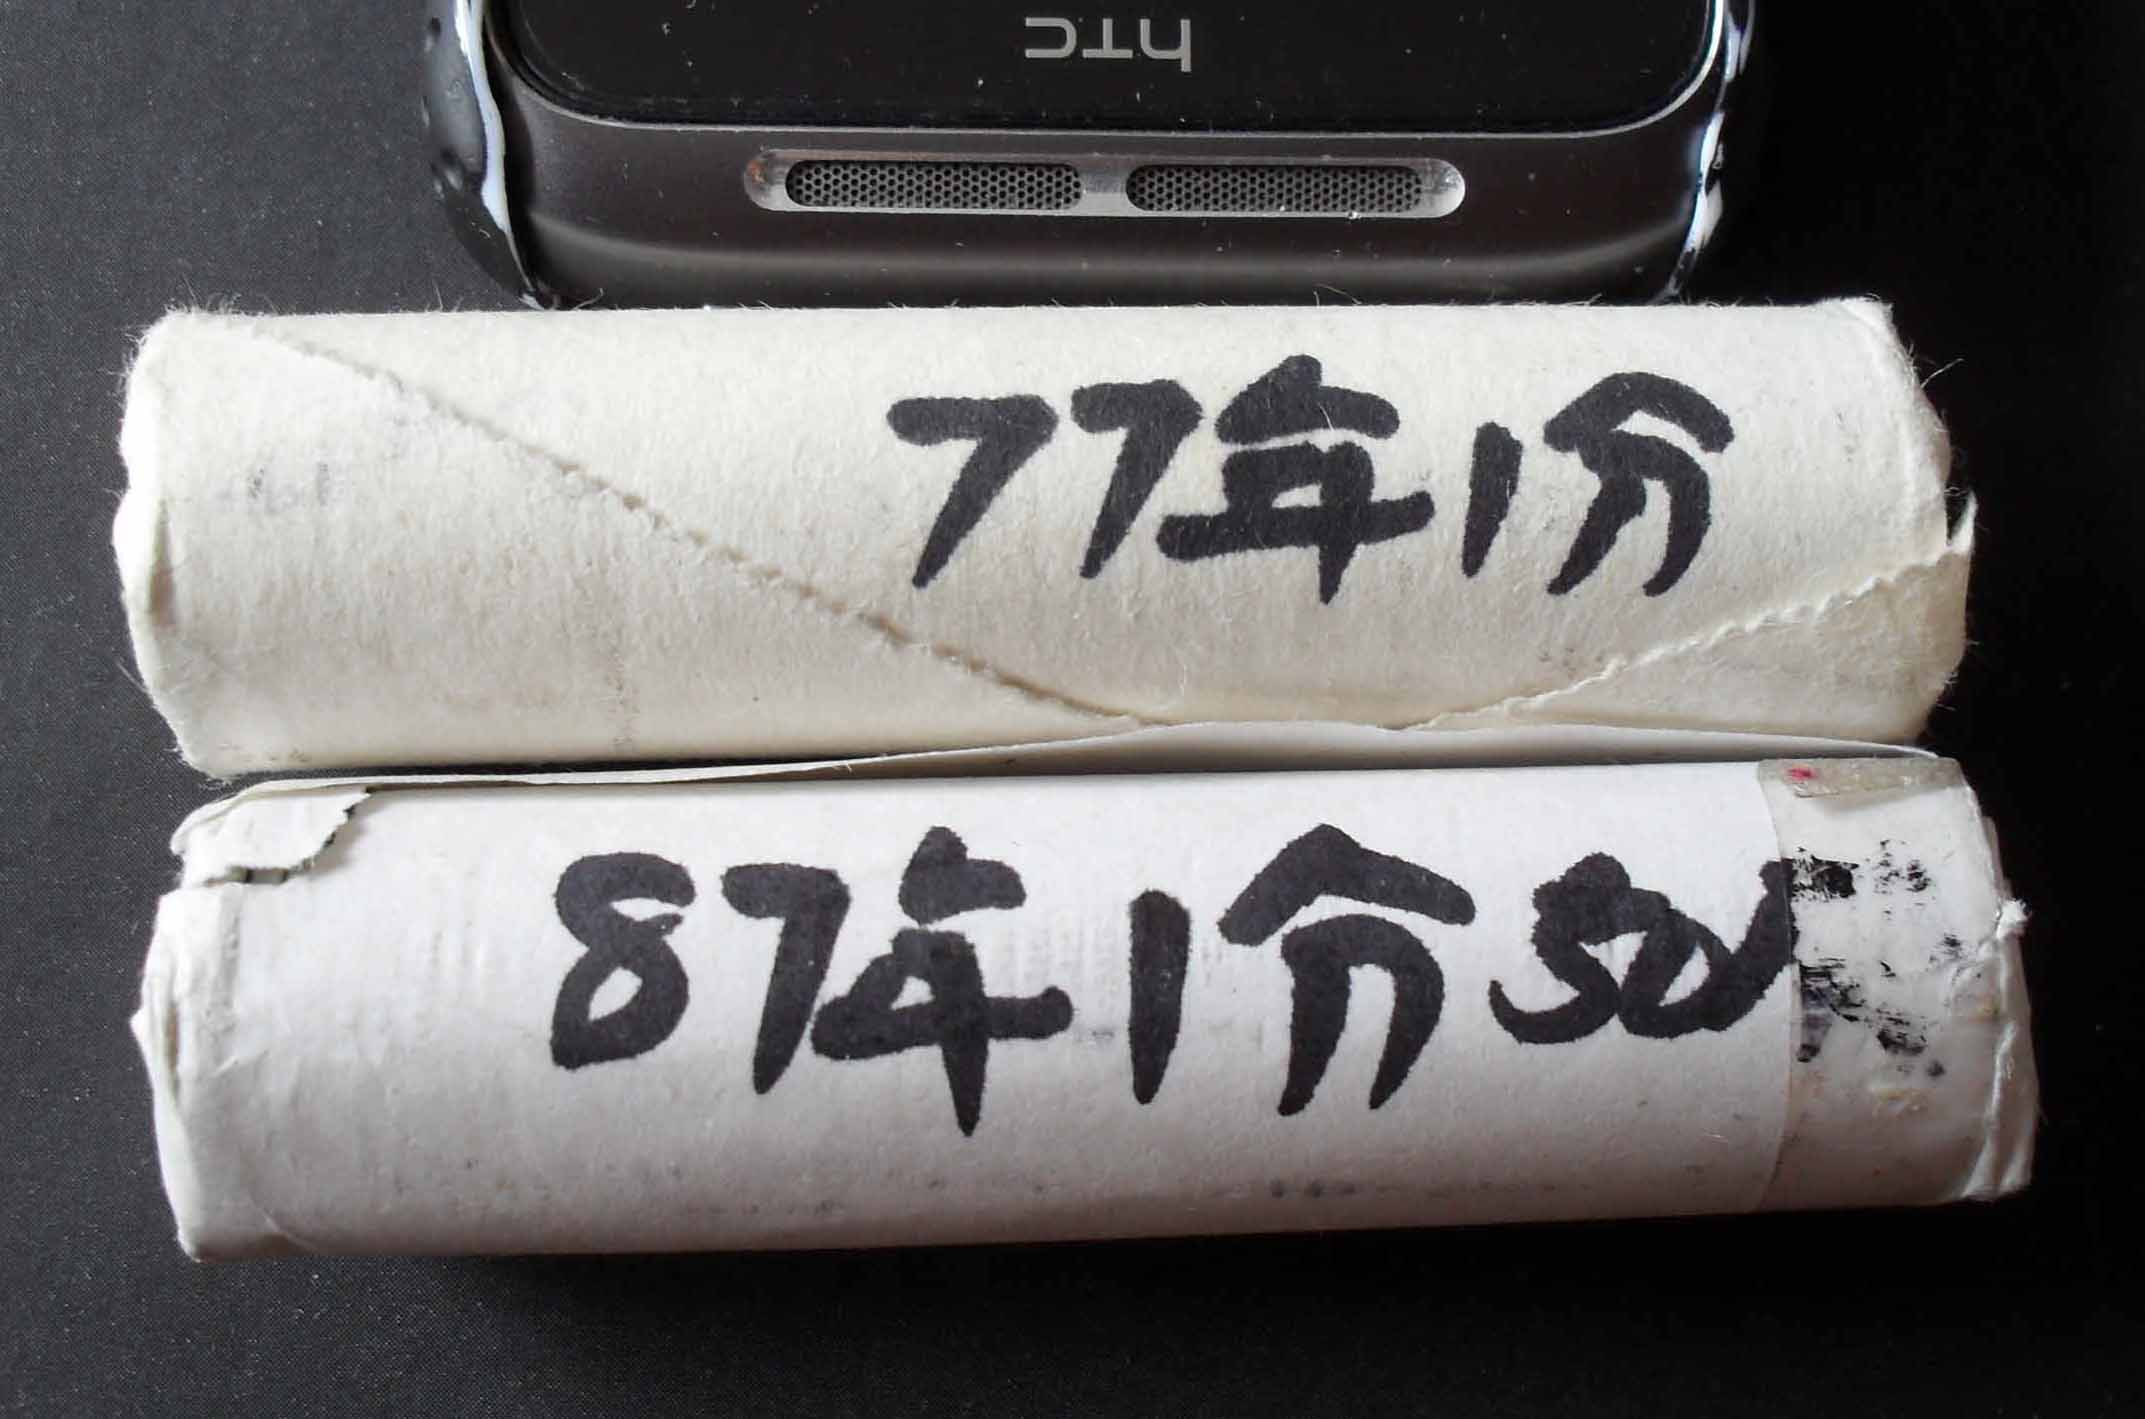 htc
77年1分
87年1分